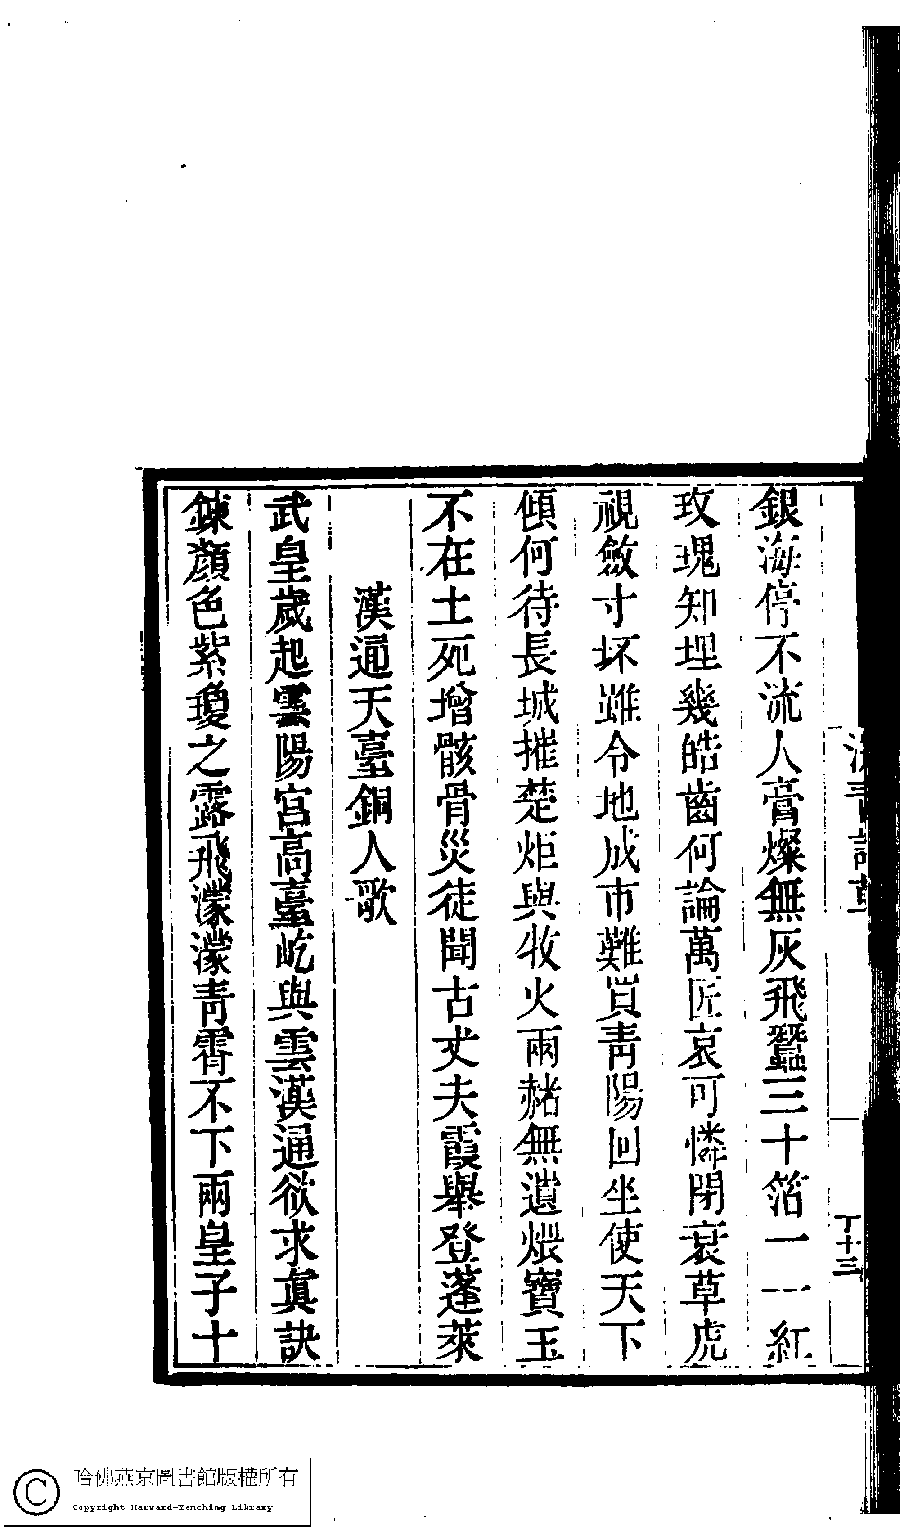 銀海停不流人膏燦無灰飛蠶三十箔一一紅
玫瑰知埋幾皓齒何論萬匠哀可憐閉衰草虎
視斂寸坏雖令地成市難買靑陽回坐使天下
傾何待長城摧楚炬與牧火兩赭無遺煨寶玉
不在土死增骸骨災徒聞古丈夫霞舉登蓬萊
漢通天臺銅人歌
武皇歲起雲陽宮高臺屹與雲漢通欲求眞訣
鍊顏色紫瓊之露飛濛濛靑霄不下兩皇子十
丁十三
哈佛燕京圖書館版權所有
Copyright Harvard-Yenching Library